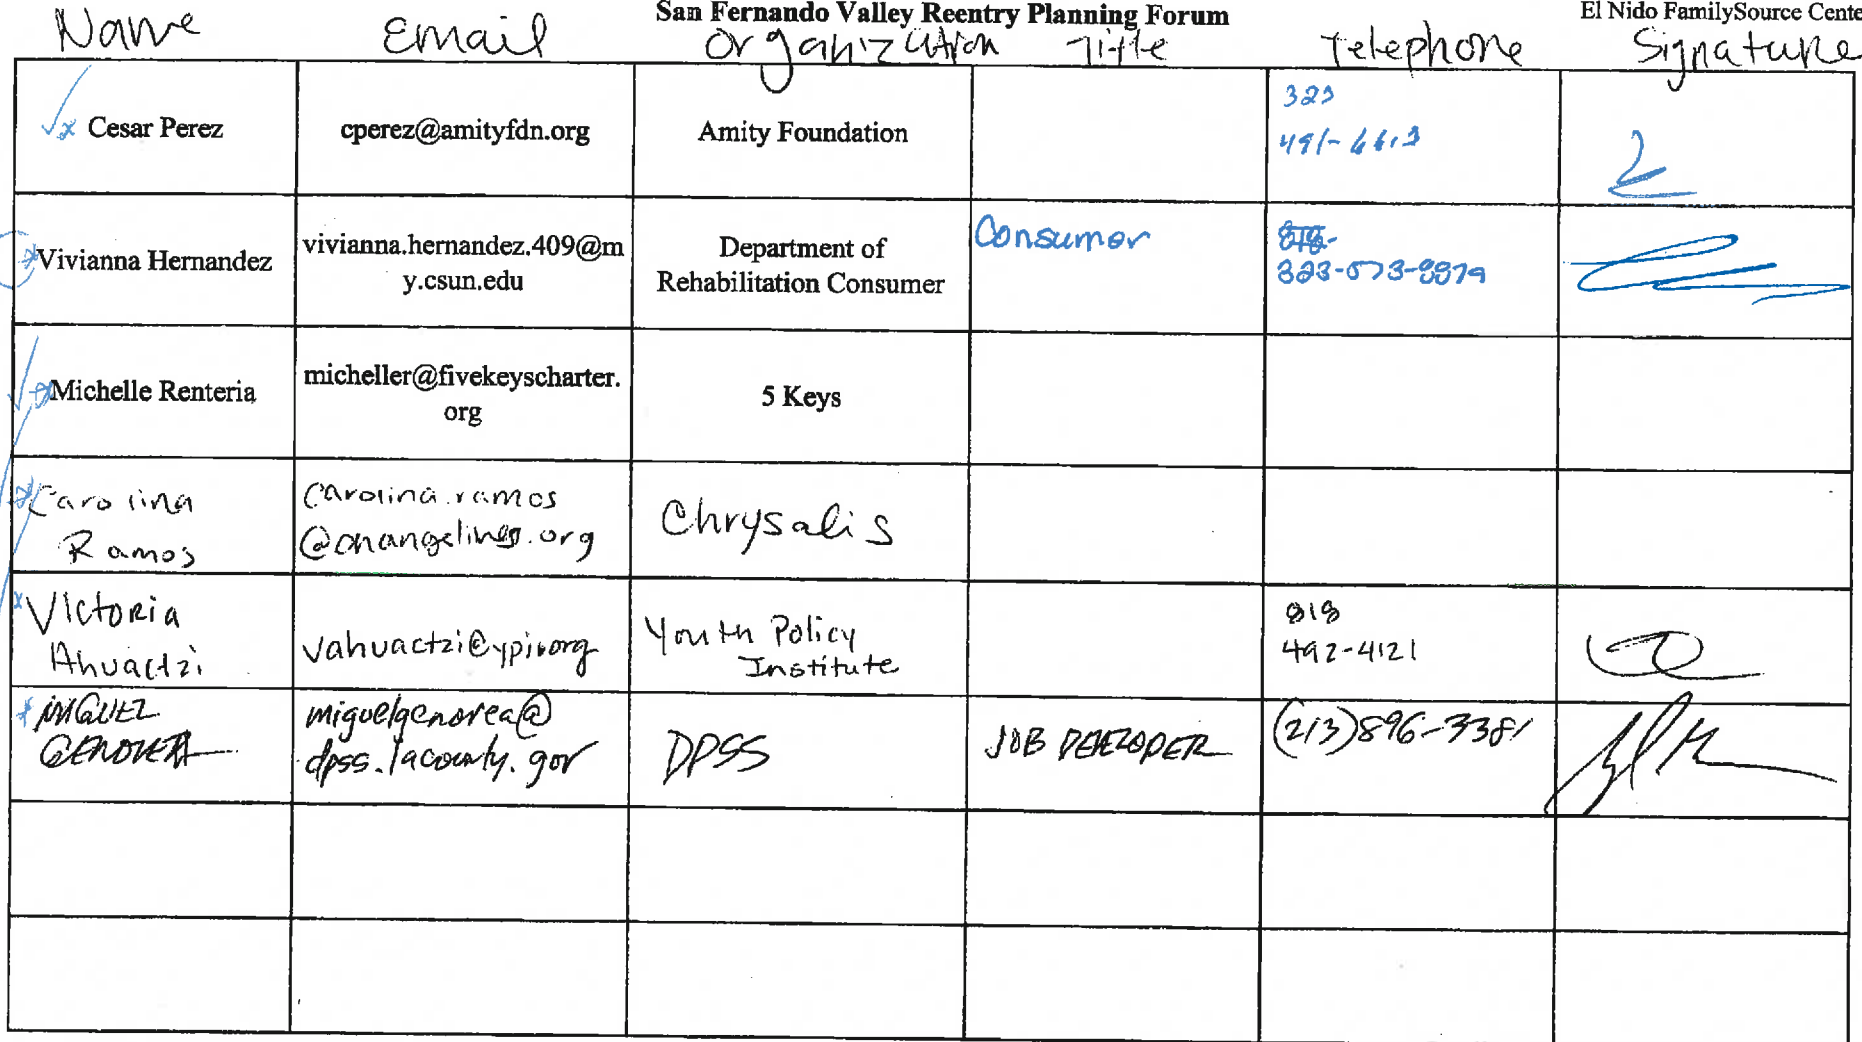 San Fernando Valley Reentry Planning Forum
El Nido FamilySource Cente
Name Email Organization Title Telephone Signature
Cesar Perez
cperez@amityfdn.org
Amity Foundation
323
Vivianna Hernandez
vivianna.hernandez.409@m
y.csun.edu
Department of
Rehabilitation Consumer
Consumer
818-
Michelle Renteria
micheller@fivekeyscharter.
org
5 Keys
Carolina
Ramos
carolina.ramos
Chrysalis
Victoria
Ahuactzi
vahuactzi@ypi.org
Youth Policy
Institute
818
492-4121
MIGUEL
GENOVEA
miguelgenovea@
dpss.lacounty.gov
DPSS
JOB DEVELOPER
(213)896-3381